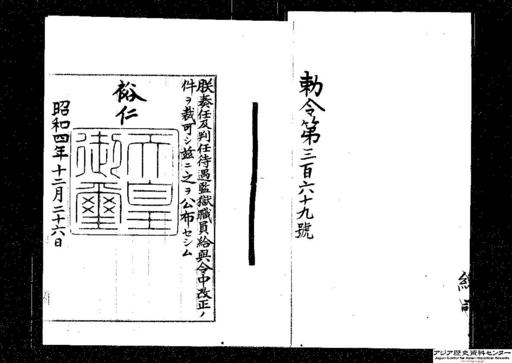 勅令第三百六十九號
朕奏任及判任待遇監獄職員給與令中改正ノ
件ヲ裁可シ茲ニ之ヲ公布セシム
裕仁
天皇
御璽
昭和四年十二月二十六日
アジア歴史資料センター
Japan Center for Asian Historical Records